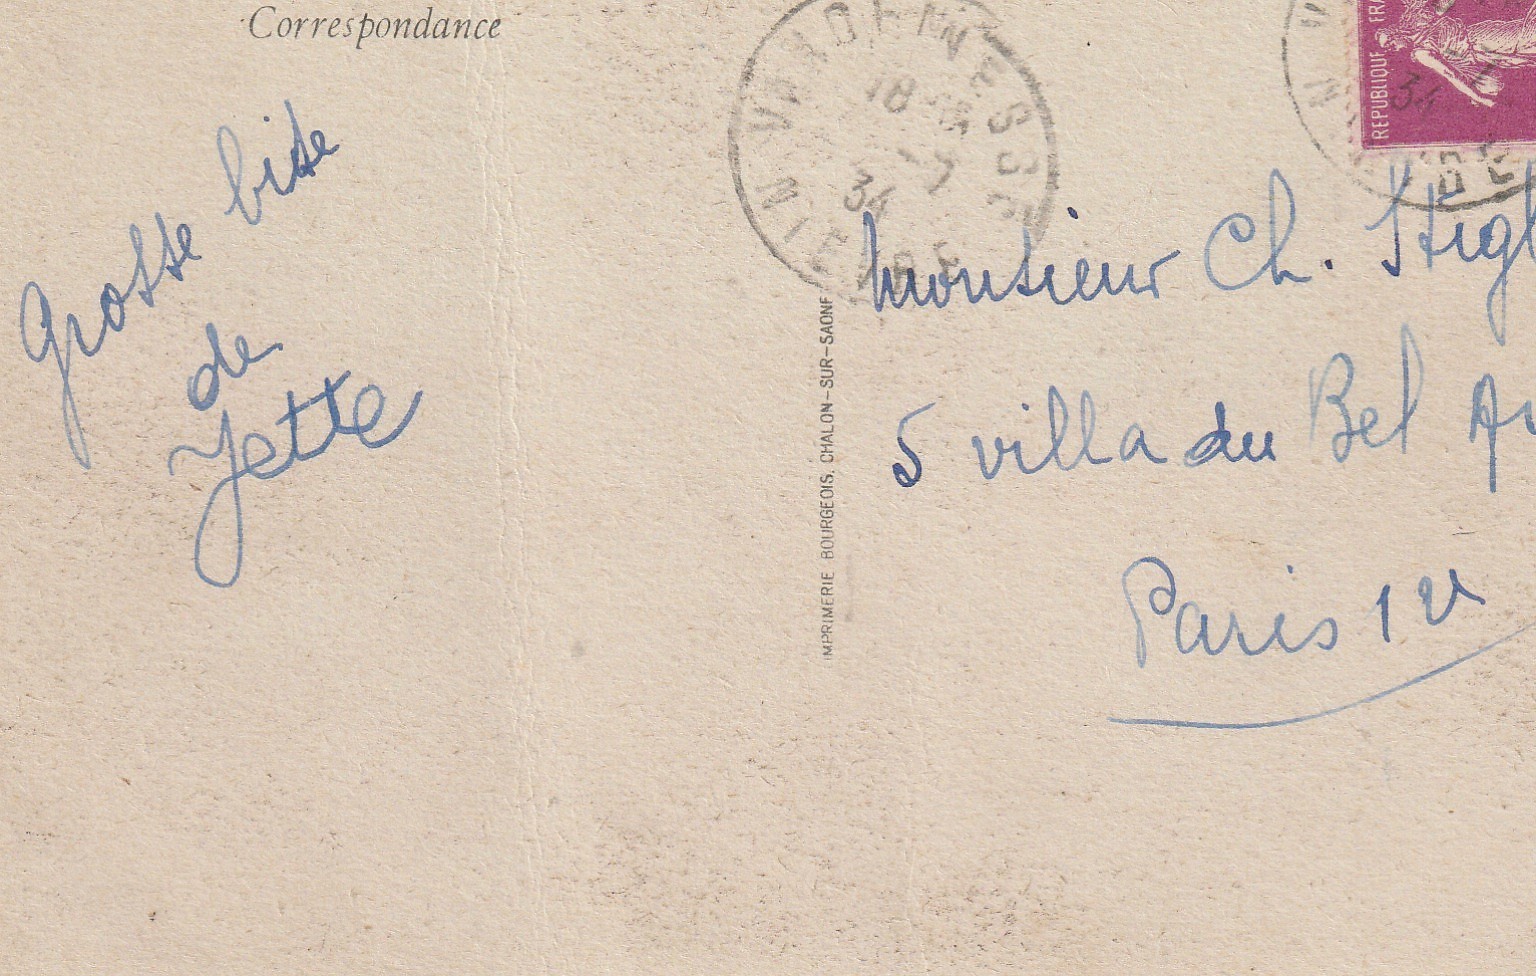 Correspondance
Grosse bise
de
Yette
VANDENESSE
18
-7
34
NIEVRE
IMPRIMERIE BOURGEOIS, CHALON-SUR-SAONE
REPUBLIQUE FRA
34
Monsieur Ch. Stigl
5 villa du Bel Air
Paris 12